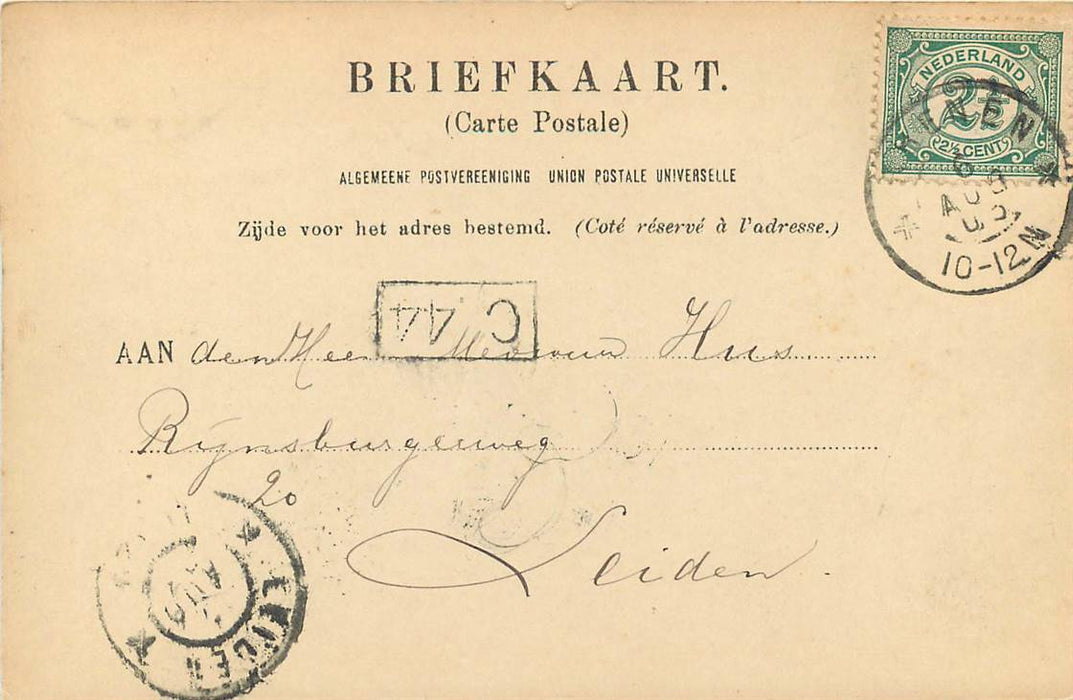 BRIEFKAART.
(Carte Postale)
ALGEMEENE POSTVEREENIGING UNION POSTALE UNIVERSELLE
Zijde voor het adres bestemd. (Coté réservé à l'adresse.)
NEDERLAND
2½
2½ CENT
AUG
10-12N
C 44
AAN den Heer Mevrouw Hus
Rijnsburgerweg
20
Leiden.
LEIDEN
AUG